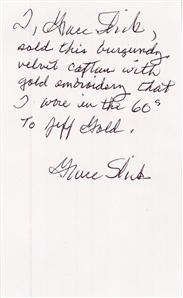 I, Grace Slick,
sold this burgundy
velvet caftan with
gold embroidery that
I wore in the 60s
To Jeff Gold.
Grace Slick